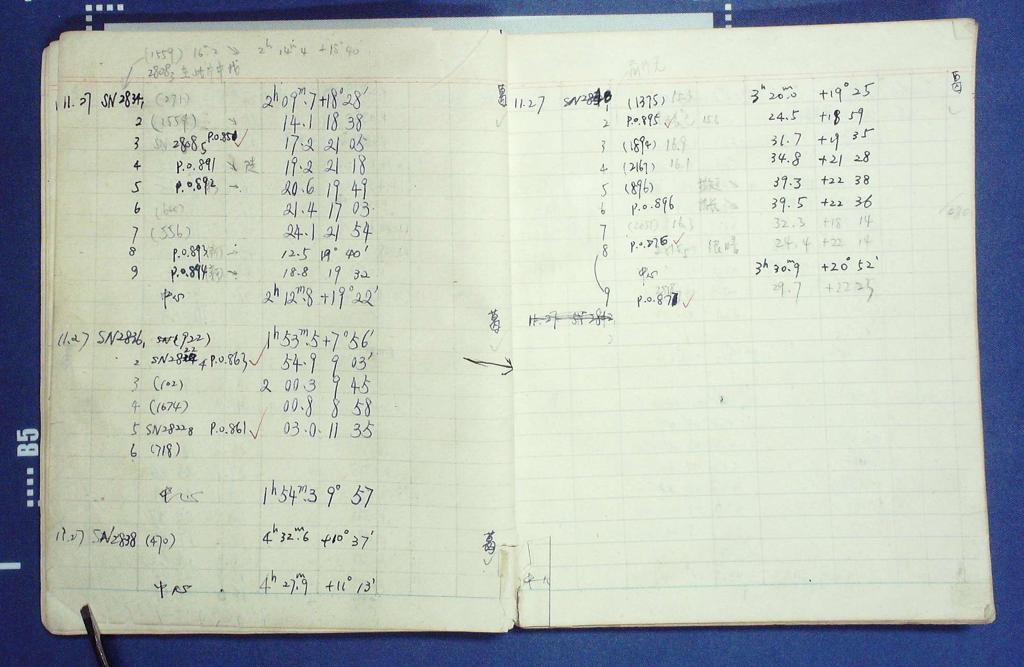 (1559) 16.2 2h 14m.4 +18° 40
28083
11.27 SN2834, (271) 2h 09m.7 +18° 28' 葛
2 (1559) 14.1 18 38
3 SN 28085 P.O.850 ✓ 17.2 21 05
4 P.O.891 19.2 21 18
5 P.O.892 20.6 19 49
6 21.4 17 03
7 (556) 24.1 21 54
8 P.O.893 12.5 19° 40'
9 P.O.894 18.8 19 32
中心 2h 12m.8 +19° 22'
11.27 SN2836, SN(922) 1h 53m.5 +7° 56' 葛
2 SN2822 4 P.O.863 ✓ 54.9 9 03'
3 (102) 2 00.3 9 45
4 (1674) 00.8 8 58
5 SN28228 P.O.861 ✓ 03.0 11 35
6 (718)
中心 1h 54m.3 9° 57
11.27 SN2838 (470) 4h 32m.6 +10° 37' 葛
中心 4h 27m.9 +11° 13'
11.27 SN2840 (1375) 15.3 3h 20m.0 +19° 25 葛
2 P.O.895 ✓ 24.5 +18 59
3 (1894) 16.9 31.7 +19 35
4 (2167) 16.1 34.8 +21 28
5 (896) 39.3 +22 38
6 P.O.896 39.5 +22 36
7 16.3 32.3 +18 14
8 P.O.876 ✓ 很暗 24.4 +22 14
中心 3h 30m.9 +20° 52'
9 P.O.877 ✓ 29.7 +22 25
B5